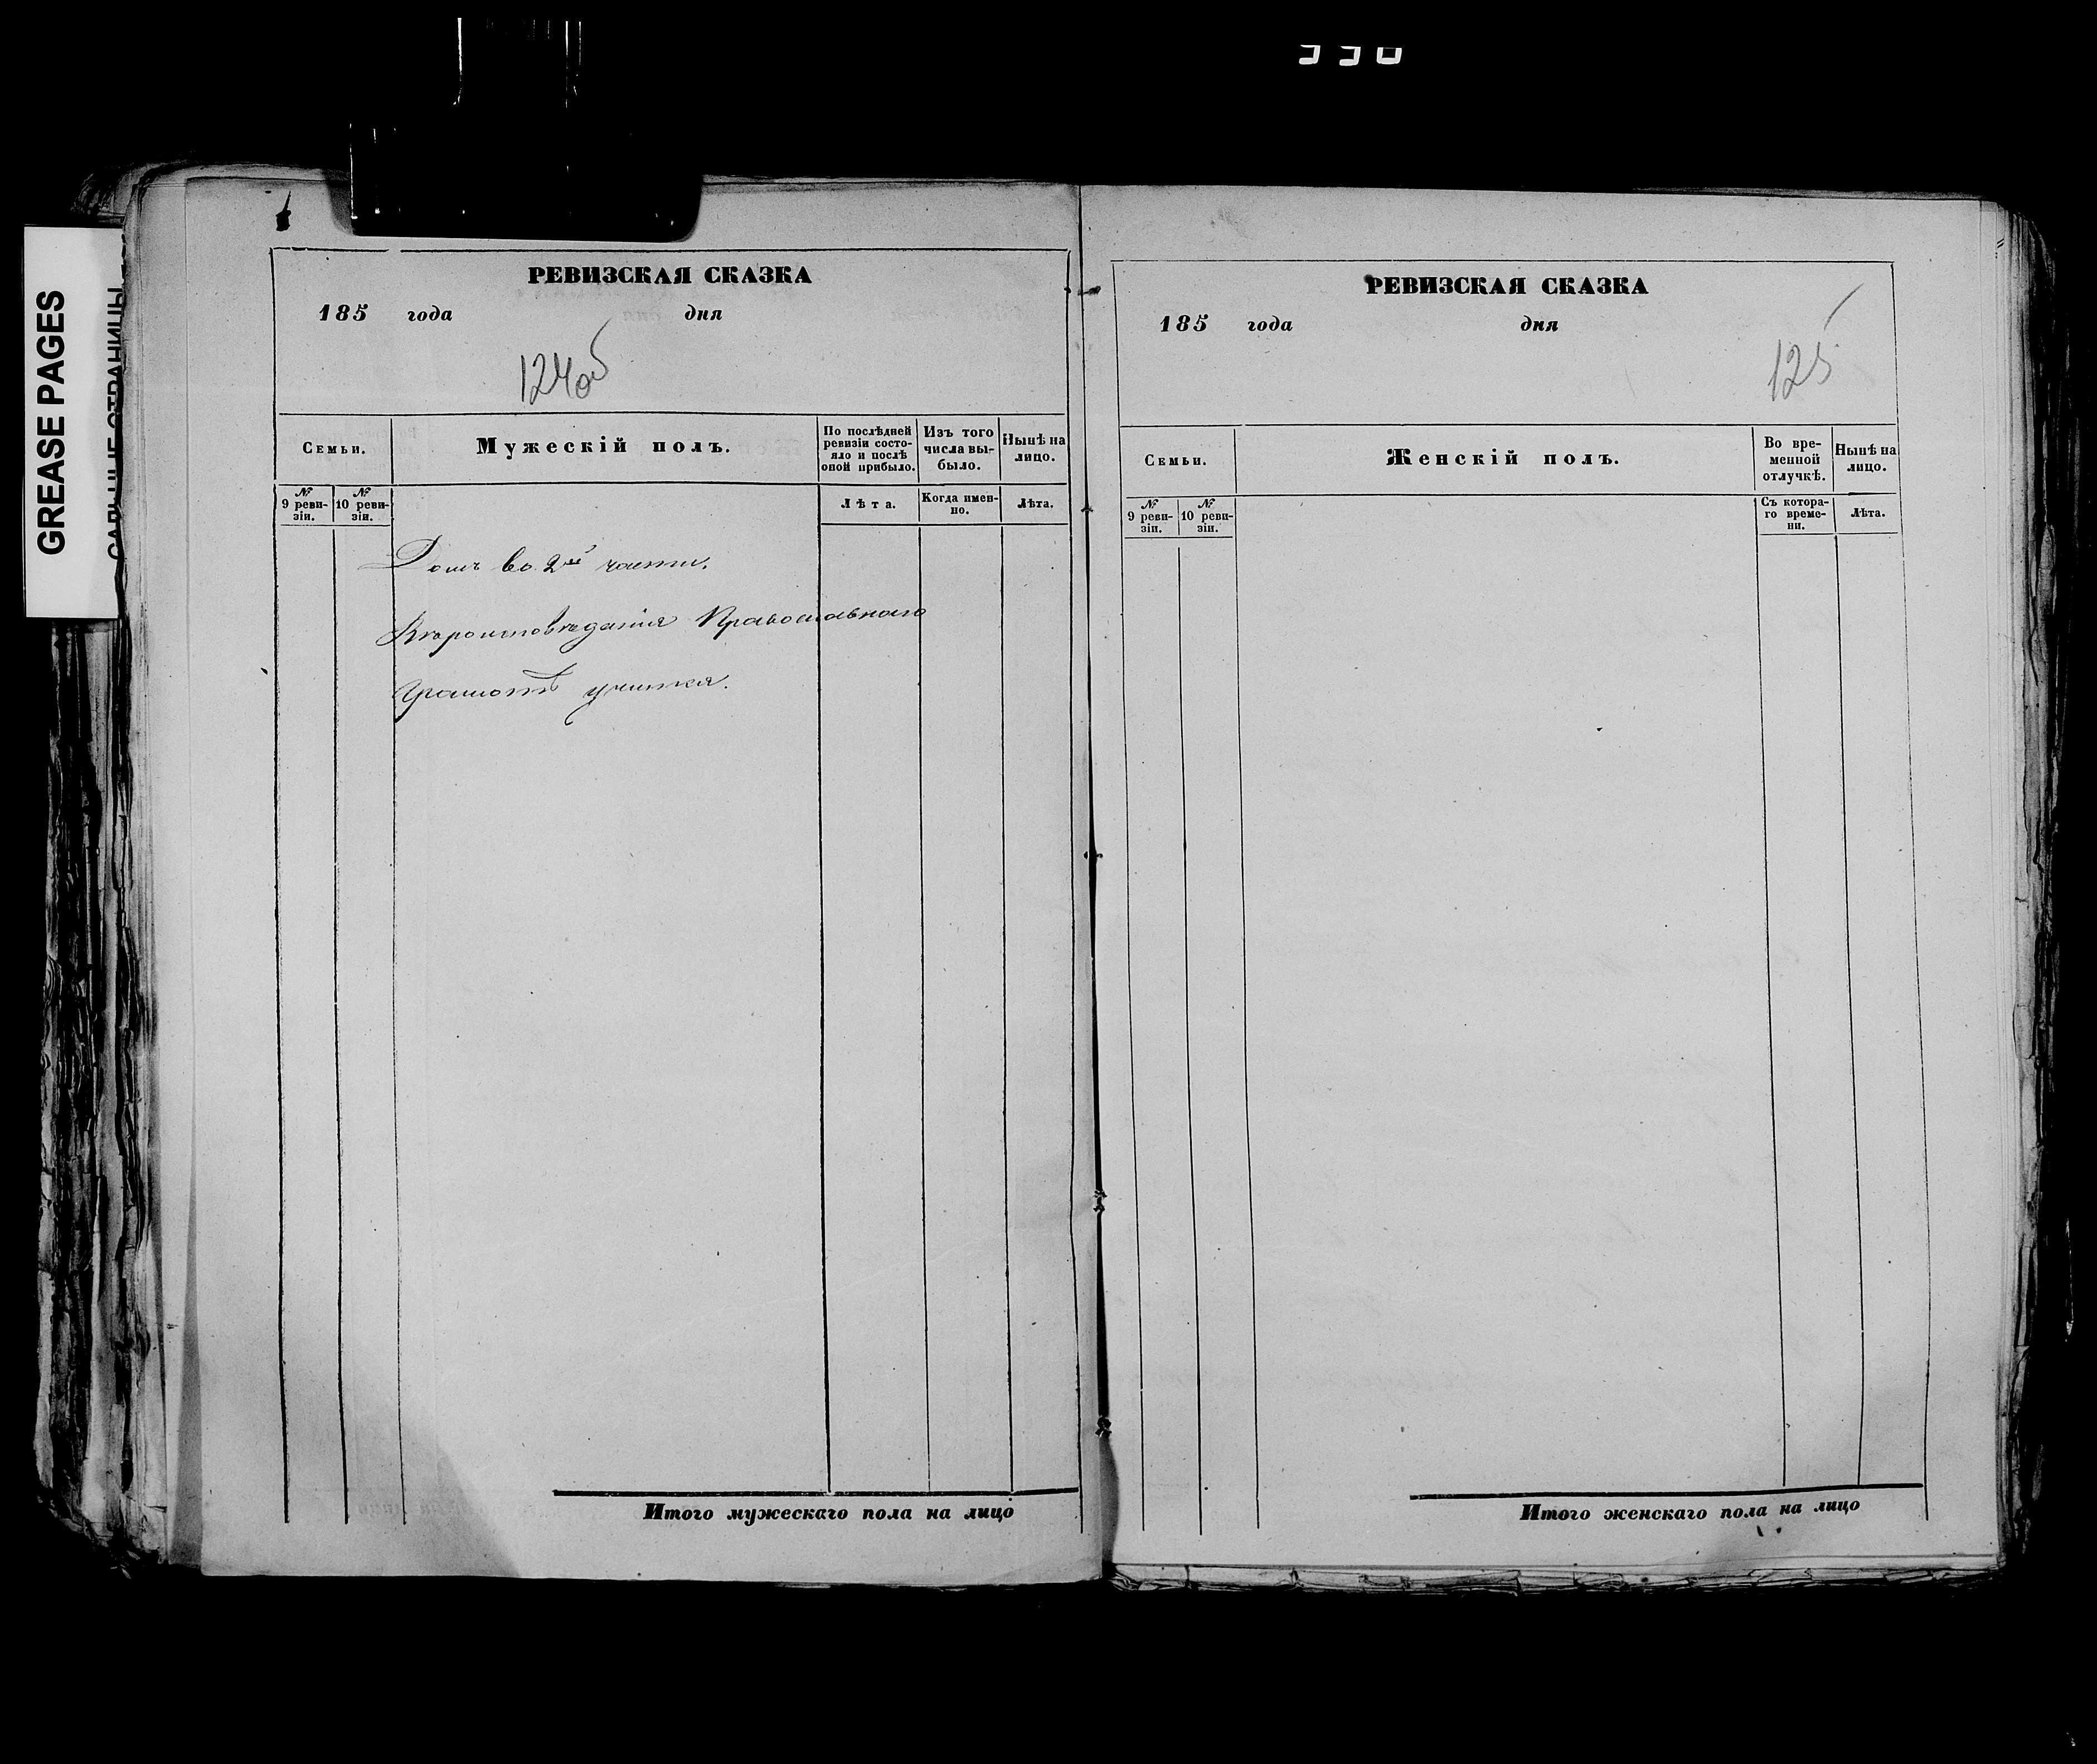 GREASE PAGES
РЕВИЗСКАЯ СКАЗКА
185 года дня
124об
Семьи.
Мужескій полъ.
По послѣдней
ревизіи состо-
яло и послѣ
оной прибыло.
Изъ того
числа вы-
было.
Нынѣ на
лицо.
№
9 реви-
зіи.
№
10 реви-
зіи.
Лѣта.
Когда имен-
но.
Лѣта.
Домъ во 2й части.
Вѣроисповѣданія Православнаго
Грамотѣ учился.
Итого мужескаго пола на лицо
РЕВИЗСКАЯ СКАЗКА
185 года дня
125
Семьи.
Женскій полъ.
Во вре-
менной
отлучкѣ.
Нынѣ на
лицо.
№
9 реви-
зіи.
№
10 реви-
зіи.
Съ котора-
го време-
ни.
Лѣта.
Итого женскаго пола на лицо